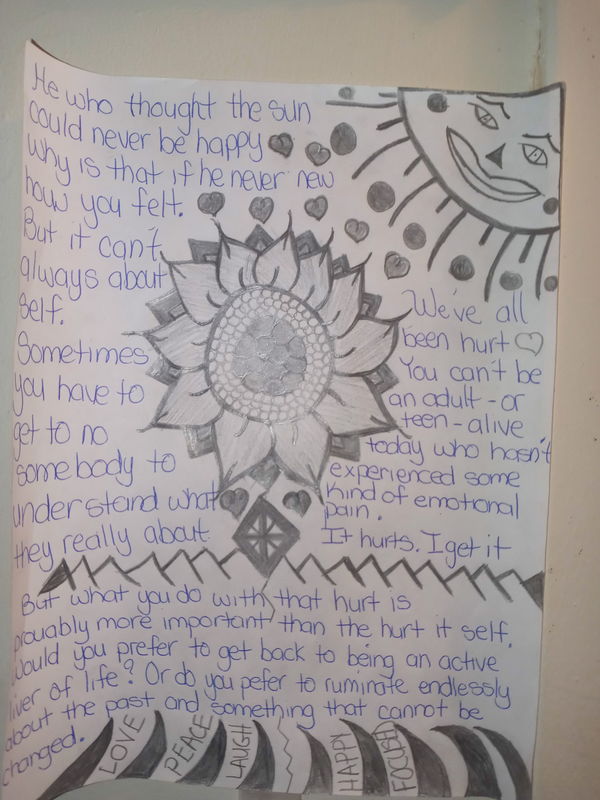 He who thought the sun
could never be happy
why is that if he never new
how you felt.
But it can't
always about
self.
Sometimes
you have to
get to no
somebody to
understand what
they really about.
We've all
been hurt
You can't be
an adult-or
teen-alive
today who hasn't
experienced some
kind of emotional
pain.
It hurts. I get it
But what you do with that hurt is
prouably more important than the hurt it self.
Would you prefer to get back to being an active
liver of life? Or do you pefer to ruminate endlessly
about the past and something that cannot be
changed.
LOVE
PEACE
LAUGH
HAPPY
FOCUSED